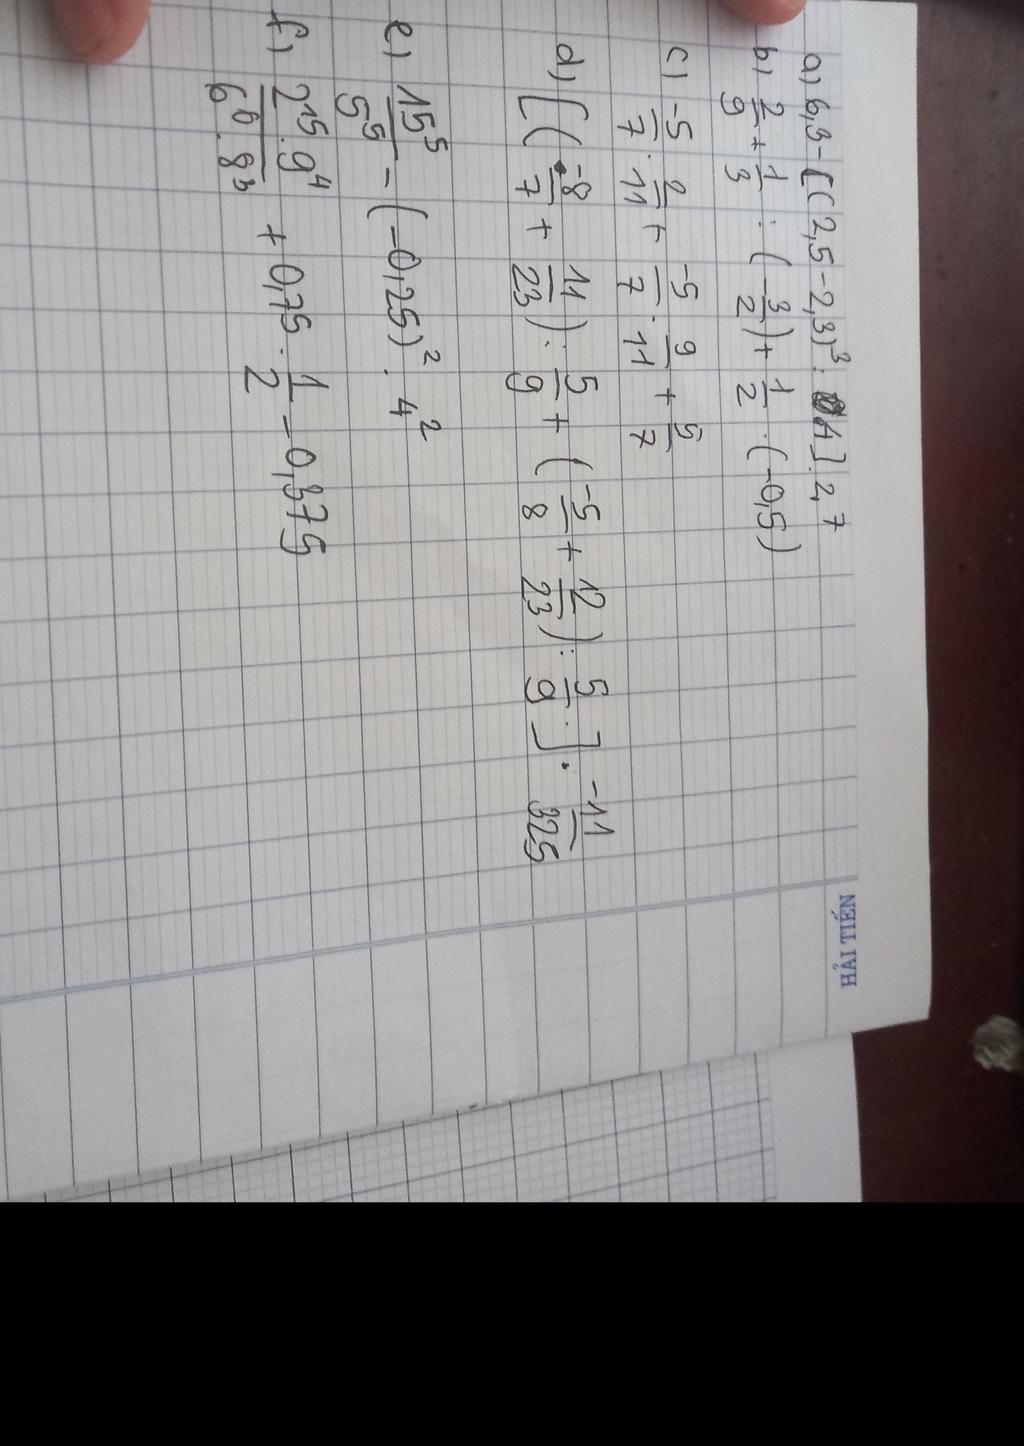 HẢI TIẾN
a) 6,3 - [(2,5 - 2,3)³ : 0,1] . 2,7
b) 2/9 + 1/3 : (-3/2) + 1/2 . (-0,5)
c) -5/7 . 2/11 + -5/7 . 9/11 + 5/7
d) [(-8/7 + 11/23) : 5/9 + (-5/8 + 12/23) : 5/9 .] . -11/325
e) 15⁵/5⁵ - (-0,25)² . 4²
f) 2¹⁵ . 9⁴/6⁶ . 8³ + 0,75 . 1/2 - 0,375